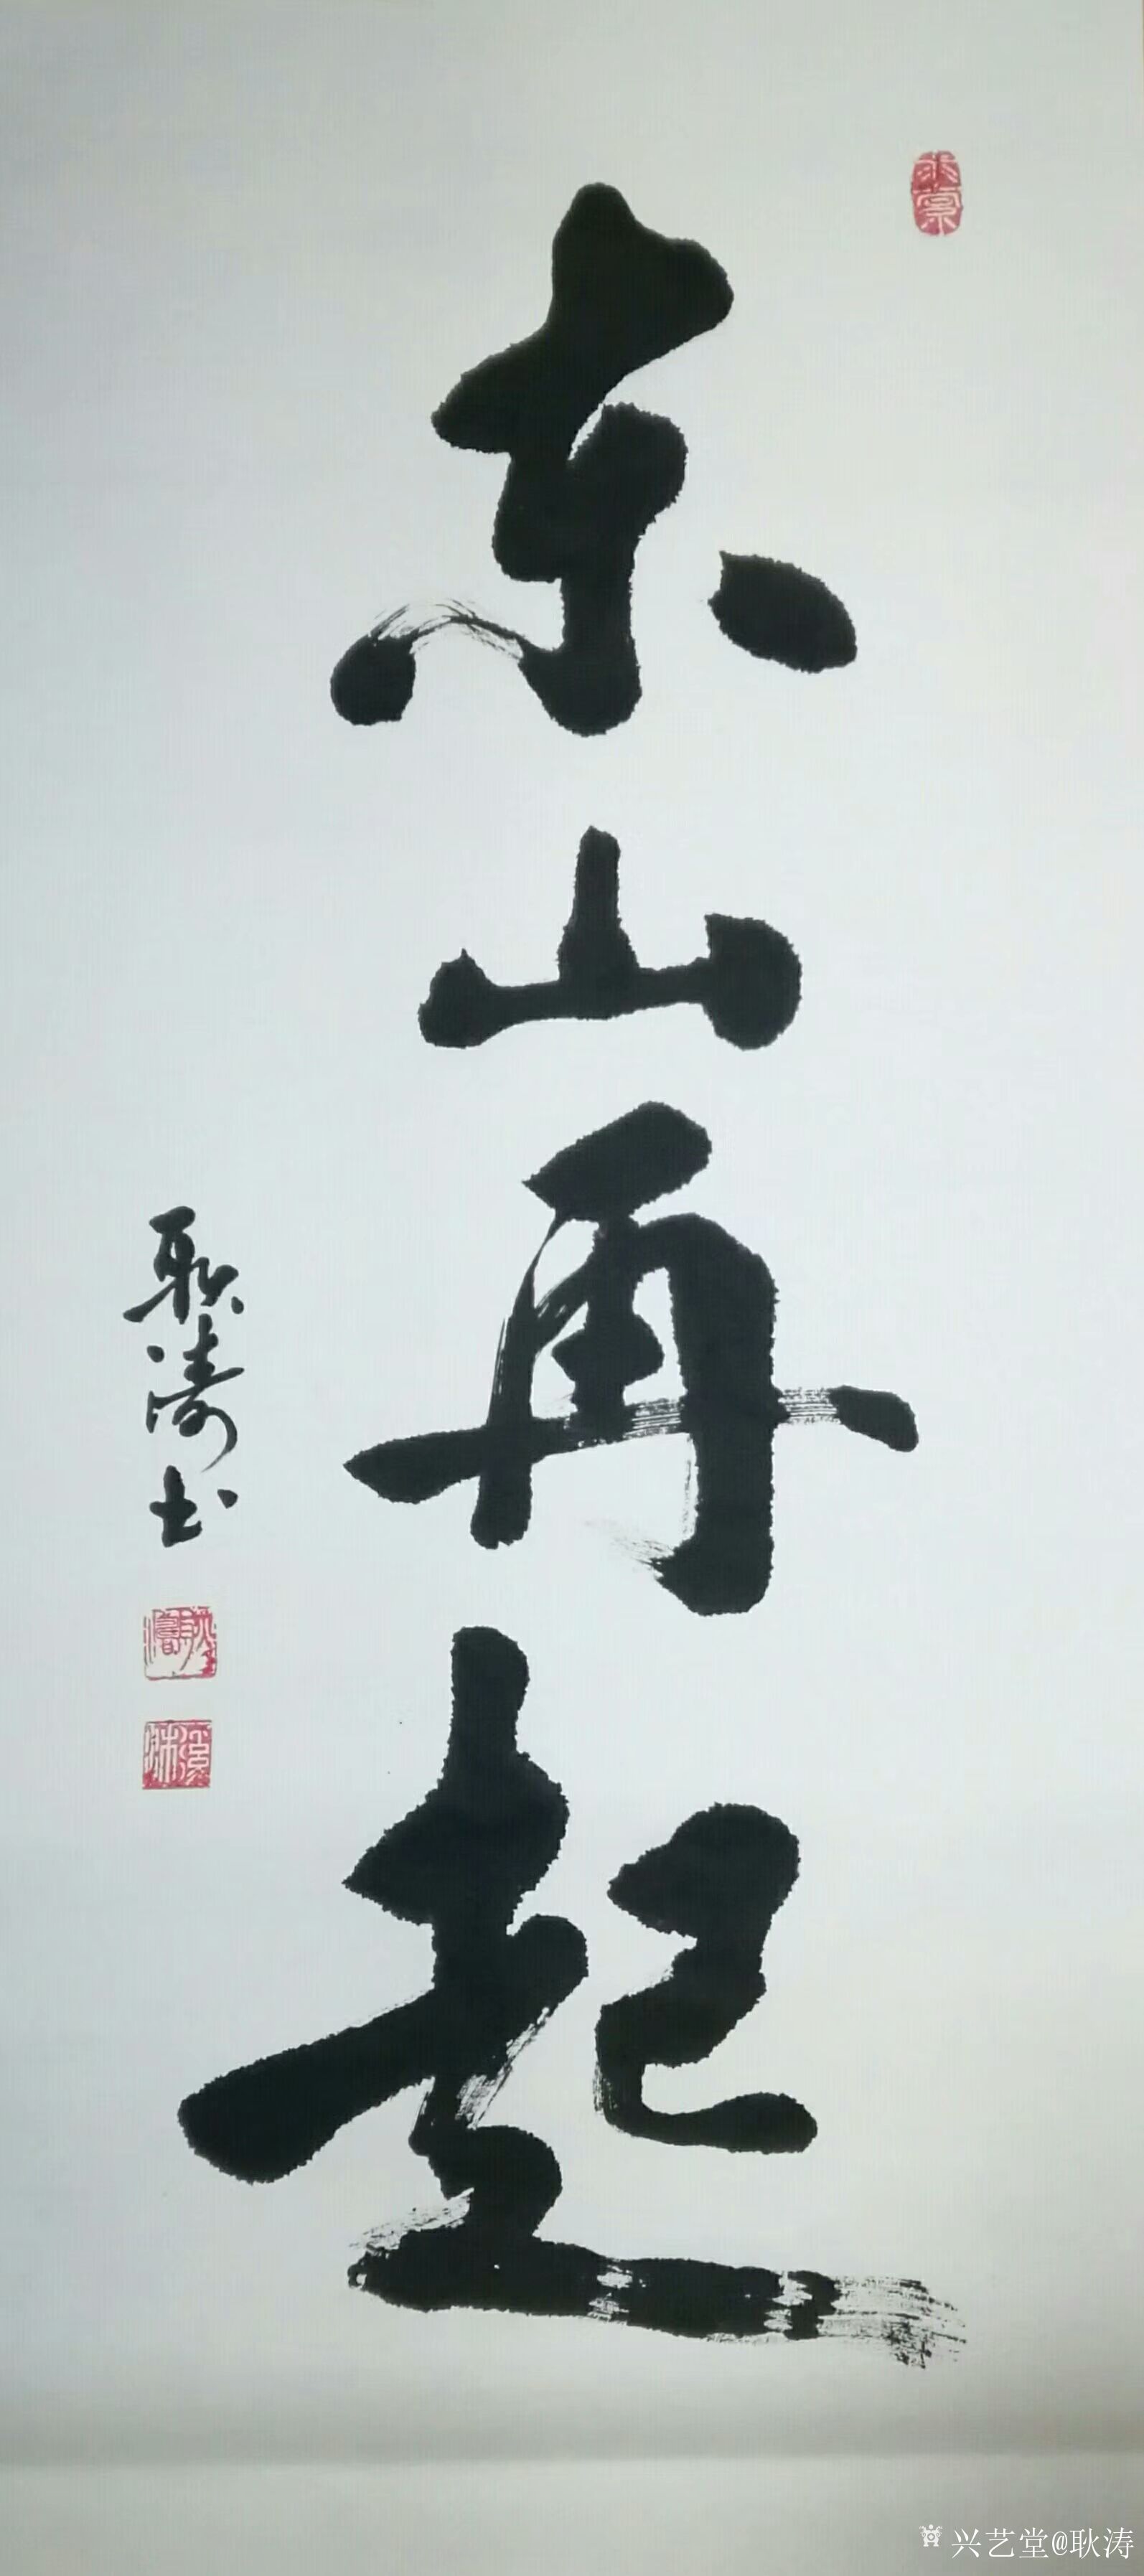 东山再起
耿涛书
兴艺堂@耿涛